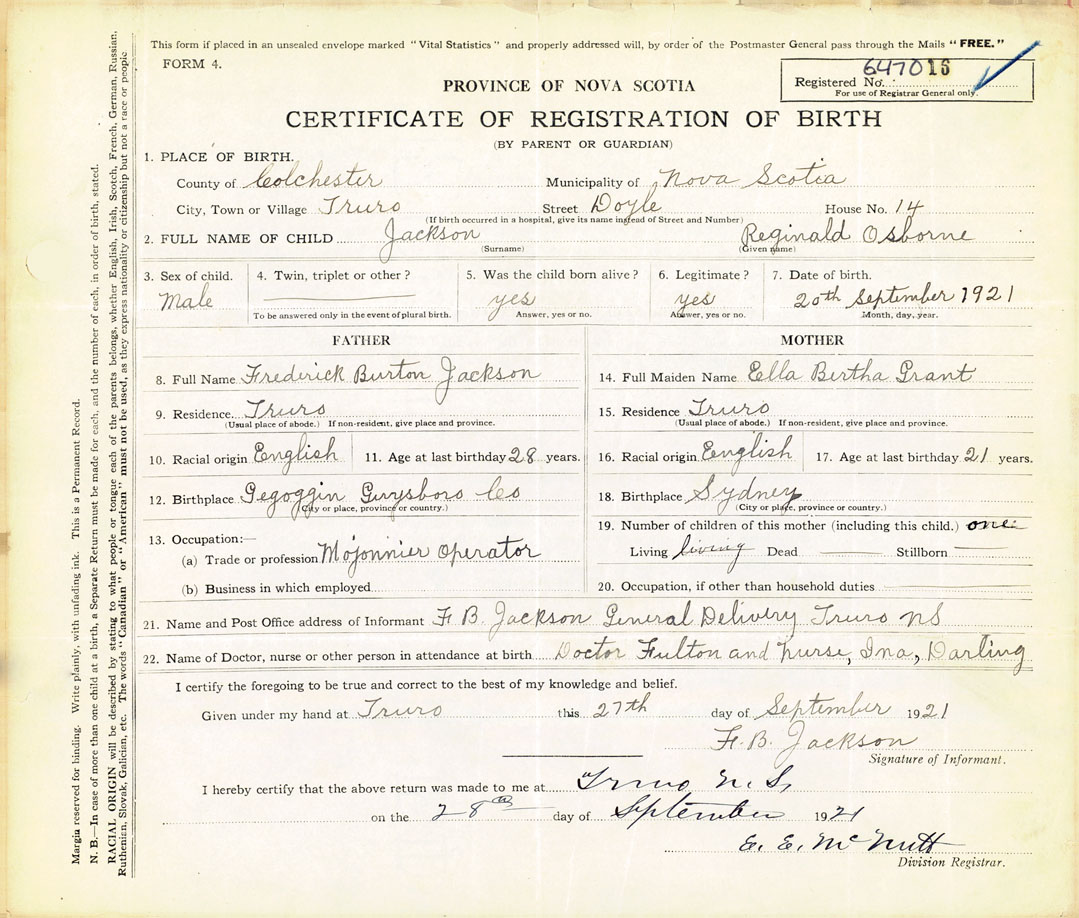 This form if placed in an unsealed envelope marked "Vital Statistics" and properly addressed will, by order of the Postmaster General pass through the Mails "FREE."
FORM 4.
647016
Registered No.
For use of Registrar General only.
PROVINCE OF NOVA SCOTIA
CERTIFICATE OF REGISTRATION OF BIRTH
(BY PARENT OR GUARDIAN)
1. PLACE OF BIRTH.
County of Colchester Municipality of Nova Scotia
City, Town or Village Truro Street Doyle House No. 14
(If birth occurred in a hospital, give its name instead of Street and Number)
2. FULL NAME OF CHILD Jackson Reginald Osborne
(Surname) (Given name)
3. Sex of child. 4. Twin, triplet or other? 5. Was the child born alive? 6. Legitimate? 7. Date of birth.
Male yes yes 20th September 1921
To be answered only in the event of plural birth. Answer, yes or no. Answer, yes or no. Month, day, year.
FATHER MOTHER
8. Full Name Frederick Burton Jackson 14. Full Maiden Name Ella Bertha Grant
9. Residence. Truro 15. Residence Truro
(Usual place of abode.) If non-resident, give place and province. (Usual place of abode.) If non-resident, give place and province.
10. Racial origin English 11. Age at last birthday 28 years. 16. Racial origin English 17. Age at last birthday 21 years.
12. Birthplace Gegoggin Guysboro Co 18. Birthplace Sydney
(City or place, province or country.) (City or place, province or country.)
13. Occupation:— 19. Number of children of this mother (including this child.) one
(a) Trade or profession Mojonnier Operator Living living Dead Stillborn
(b) Business in which employed 20. Occupation, if other than household duties
21. Name and Post Office address of Informant F. B. Jackson General Delivery Truro NS
22. Name of Doctor, nurse or other person in attendance at birth Doctor Fulton and nurse, Ina, Darling
I certify the foregoing to be true and correct to the best of my knowledge and belief.
Given under my hand at Truro this 27th day of September 1921
F. B. Jackson
Signature of Informant.
I hereby certify that the above return was made to me at Truro N. S.
on the 28th day of September 1921
E. E. McNutt
Division Registrar.
Margin reserved for binding. Write plainly, with unfading ink. This is a Permanent Record.
N. B.—In case of more than one child at a birth, a Separate Return must be made for each, and the number of each, in order of birth, stated.
RACIAL ORIGIN will be described by stating to what people or tongue each of the parents belongs, whether English, Irish, Scotch, French, German, Russian,
Ruthenian, Slovak, Galician, etc. The words "Canadian" or "American" must not be used, as they express nationality or citizenship but not a race or people.